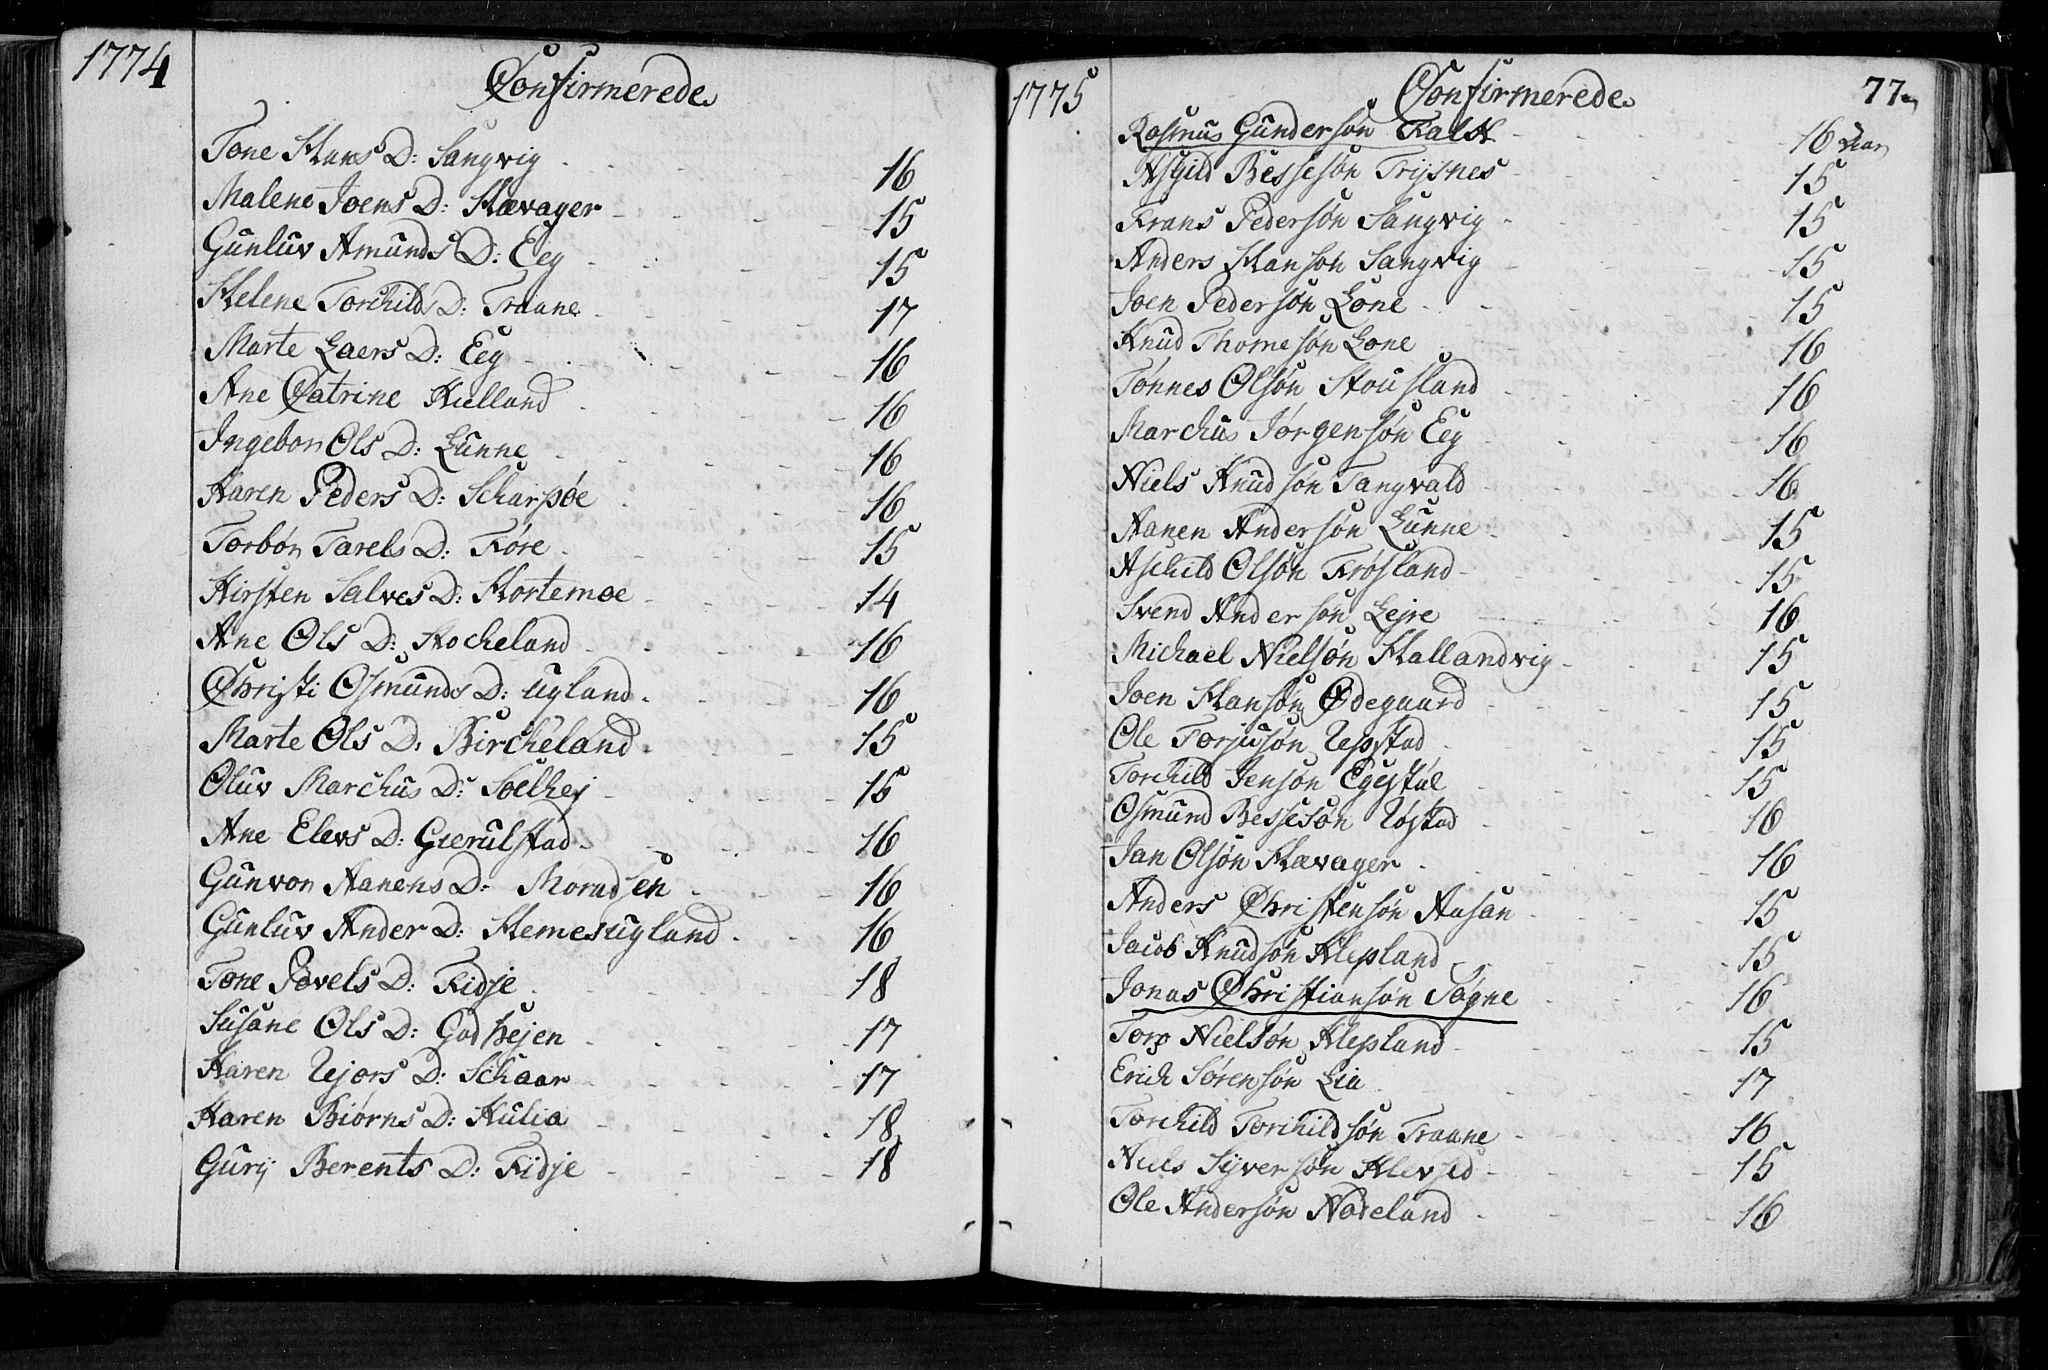 1774
Confirmerede
Tone Hans D: Sangvig 16
Malene Joens D: Høvager 15
Gunluv Amunds D: Eeg 15
Helene Torchilds D: Traane 17
Marte Laers D: Eeg 16
Ane Catrine Hielland 16
Ingebor Ols D: Lunne 16
Karen Peders D: Scharpøe 16
Torbør Tarels D: Føre 15
Kirsten Salves D: Hortemoe 14
Ane Ols D: Stocheland 16
Christi Osmunds D: Ugland 16
Marte Ols D: Bircheland 15
Oluv Marchus D: Soelhej 15
Ane Elevs D: Gierulstad 16
Gunvor Aanens D: 16
Gunluv Ander D: Hemesugland 16
Tone Povels D: Fidje 18
Susane Ols D: Godhejen 17
Karen D: Schaar 17
Karen Biørns D: Kulia 18
Gurij Berents D: Fidje 18
1775
Confirmerede
77
Rasmus Gundersøn Falk 16 Aar
Asgild Bessesøn Trysnes 15
Frans Pedersøn Sangvig 15
Anders Hansøn Sangvig 15
Joen Pedersøn Lone 15
Knud Thomesøn Lone 16
Tønnes Olsøn Stousland 16
Marchus Jørgensøn Eeg 16
Niels Knudsøn Tangvald 16
Aanen Andersøn Lunne 15
Aschild Olsøn Frøsland 15
Svend Andersøn Lejre 16
Michael Nielsøn Hallandvig 15
Joen Hansøn Ødegaard 15
Ole Torjusøn Repstad 15
Torchild Jensøn Egestøl 15
Osmund Bessesøn Røstad 16
Jan Olsøn Høvager 16
Anders Christensøn Aasan 15
Jacob Knudsøn Klepland 15
Jonas Christiansøn Søgne 16
Torg Nielsøn Klepland 15
Erich Sørensøn Lia 17
Torchild Torchildsøn Traane 16
Niels Syversøn Klevsed 15
Ole Andersøn Nodeland 16